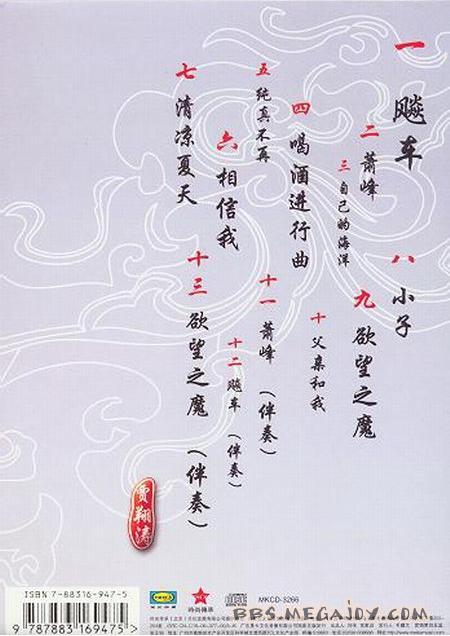 一 飚车
二 萧峰
三 自己的海洋
四 喝酒进行曲
五 纯真不再
六 相信我
七 清凉夏天
八 小子
九 欲望之魔
十 父亲和我
十一 萧峰 (伴奏)
十二 飚车 (伴奏)
十三 欲望之魔 (伴奏)
贾翔涛
ISBN 7-88316-947-5
9 787883 169475 >
时尚传承
MKCD-3266
BBS.MEGAJOY.COM